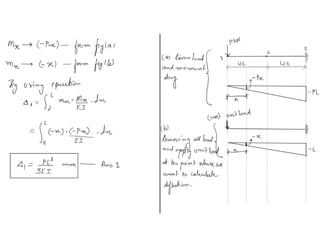 Mx → (-Px) — from fig(a)
mx → (-x) — from fig(b)
By using equation
Δ1 = ∫ 0 L mx · Mx / EI · dx
= ∫ 0 L (-x) · (-Px) / EI · dx
Δ1 = PL³ / 3EI mm — Ans 1
(a) beam load and moment diag.
PkN
1
2
3
L/2
L/2
-Px
x
-PL
(b)
Removing all load and apply unit load at the point where we want to calculate deflection.
unit load
-x
x
-L